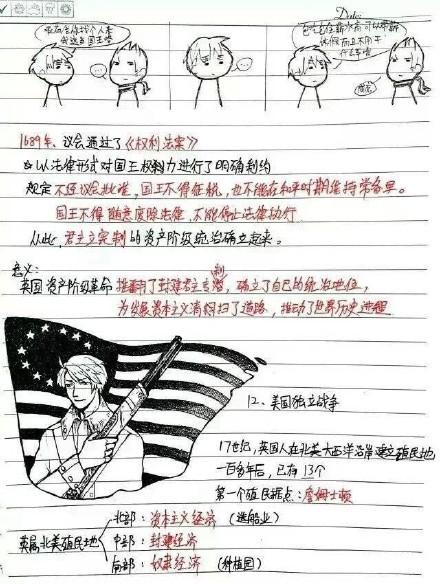 Date
1689年，议会通过了《权利法案》
以法律形式对国王权利力进行了明确制约
规定 不经议会批准，国王不得征税，也不能在和平时期维持常备军。
国王不得随意废除法律，不能停止法律执行
从此，君主立宪制的资产阶级统治确立起来。
意义：
英国资产阶级革命 推翻了封建君主专制，确立了自己的统治地位，
为发展资本主义清扫了道路，推动了世界历史进程
12、美国独立战争
17世纪，英国人在北美大西洋沿岸建立殖民地
一百多年后，已有13个
第一个殖民据点：詹姆士顿
英属北美殖民地
北部：资本主义经济（造船业）
中部：封建经济
南部：奴隶经济（种植园）